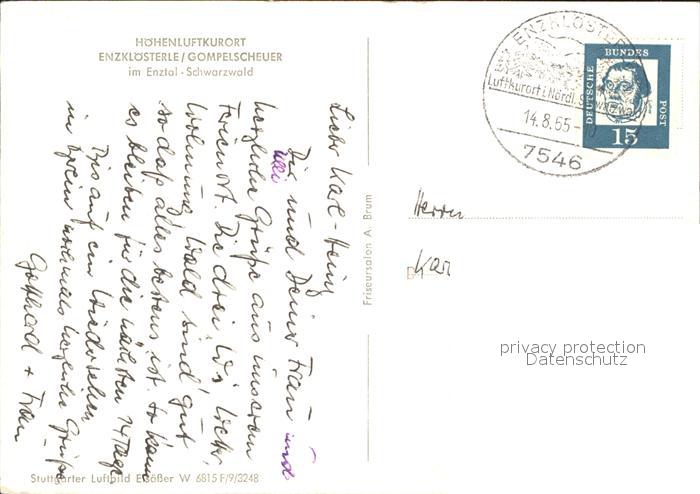 HÖHENLUFTKURORT
ENZKLÖSTERLE/GOMPELSCHEUER
im Enztal - Schwarzwald
Lieber Karl-Heinz
Dir und Deiner Frau und
Ulli
herzliche Grüße aus unserem
Ferienort. Die drei W's
Wohnung, Wald sind gut
so daß alles bestens ist. So kann
es bleiben für die nächsten 14 Tage
Bis auf ein Wiedersehen
nochmals herzliche Grüße
Gotthard + Frau
Stuttgarter Luftbild Elsäßer W 6815 F/9/3248
Friseursalon A. Brum
ENZKLÖSTERLE
Luftkurort i. Nördl. Schwarzwald
14.8.65
7546
DEUTSCHE
BUNDES
POST
15
Herrn
Kar
privacy protection
Datenschutz